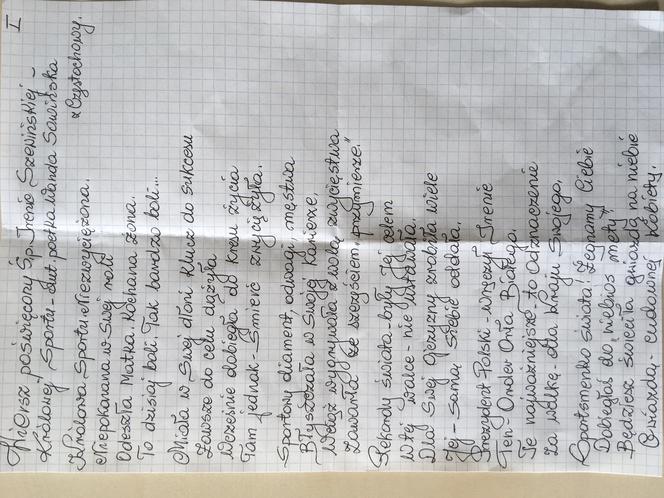 I
Wiersz poświęcony Ś.p. Irenie Szewińskiej -
Królowej Sportu - aut. poetka Wanda Sawińska
z Częstochowy.
Królowa Sportu. Niezwyciężona.
Niepokonana w Swej roli
Odeszła Matka. Kochana Żona.
To dzisiaj boli. Tak bardzo boli...
Miała w Swej dłoni klucz do sukcesu
Zawsze do celu dążyła
Wcześnie dobiegła do kresu życia
Tam jednak - Śmierć zwyciężyła.
Sportowy diament, odwagi, męstwa
Błyszczała w Swojej karierze,
Wciąż wygrywała z wolą zwycięstwa
Zawarła "ze szczęściem przymierze."
Rekordy świata - były Jej celem
W tej walce - nie ustawała.
Dla Swej Ojczyzny zrobiła wiele
Jej - Samą Siebie oddała.
Prezydent Polski - wręczył Irenie
Ten - Order Orła Białego.
Te najważniejsze to odznaczenie
Za walkę, dla kraju Swojego.
Sportsmenko świata! Żegnamy Ciebie
Dobiegłaś do "niebios mety"
Będziesz świecić gwiazdą na niebie
Gwiazdą - cudownej kobiety.